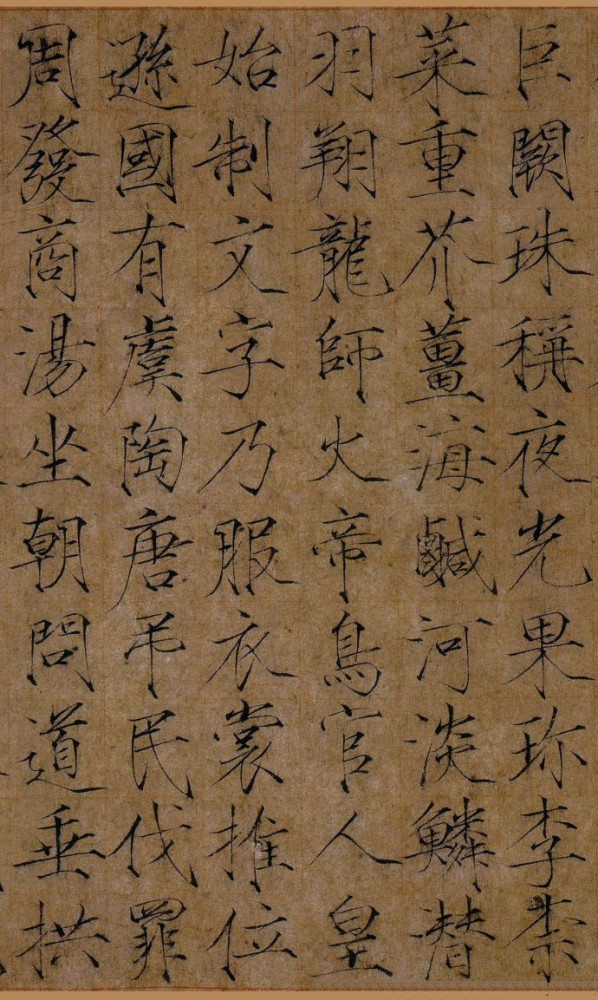 巨闕珠稱夜光果珎李柰
菜重芥薑海鹹河淡鱗潛
羽翔龍師火帝鳥官人皇
始制文字乃服衣裳推位
遜國有虞陶唐弔民伐罪
周發商湯坐朝問道垂拱